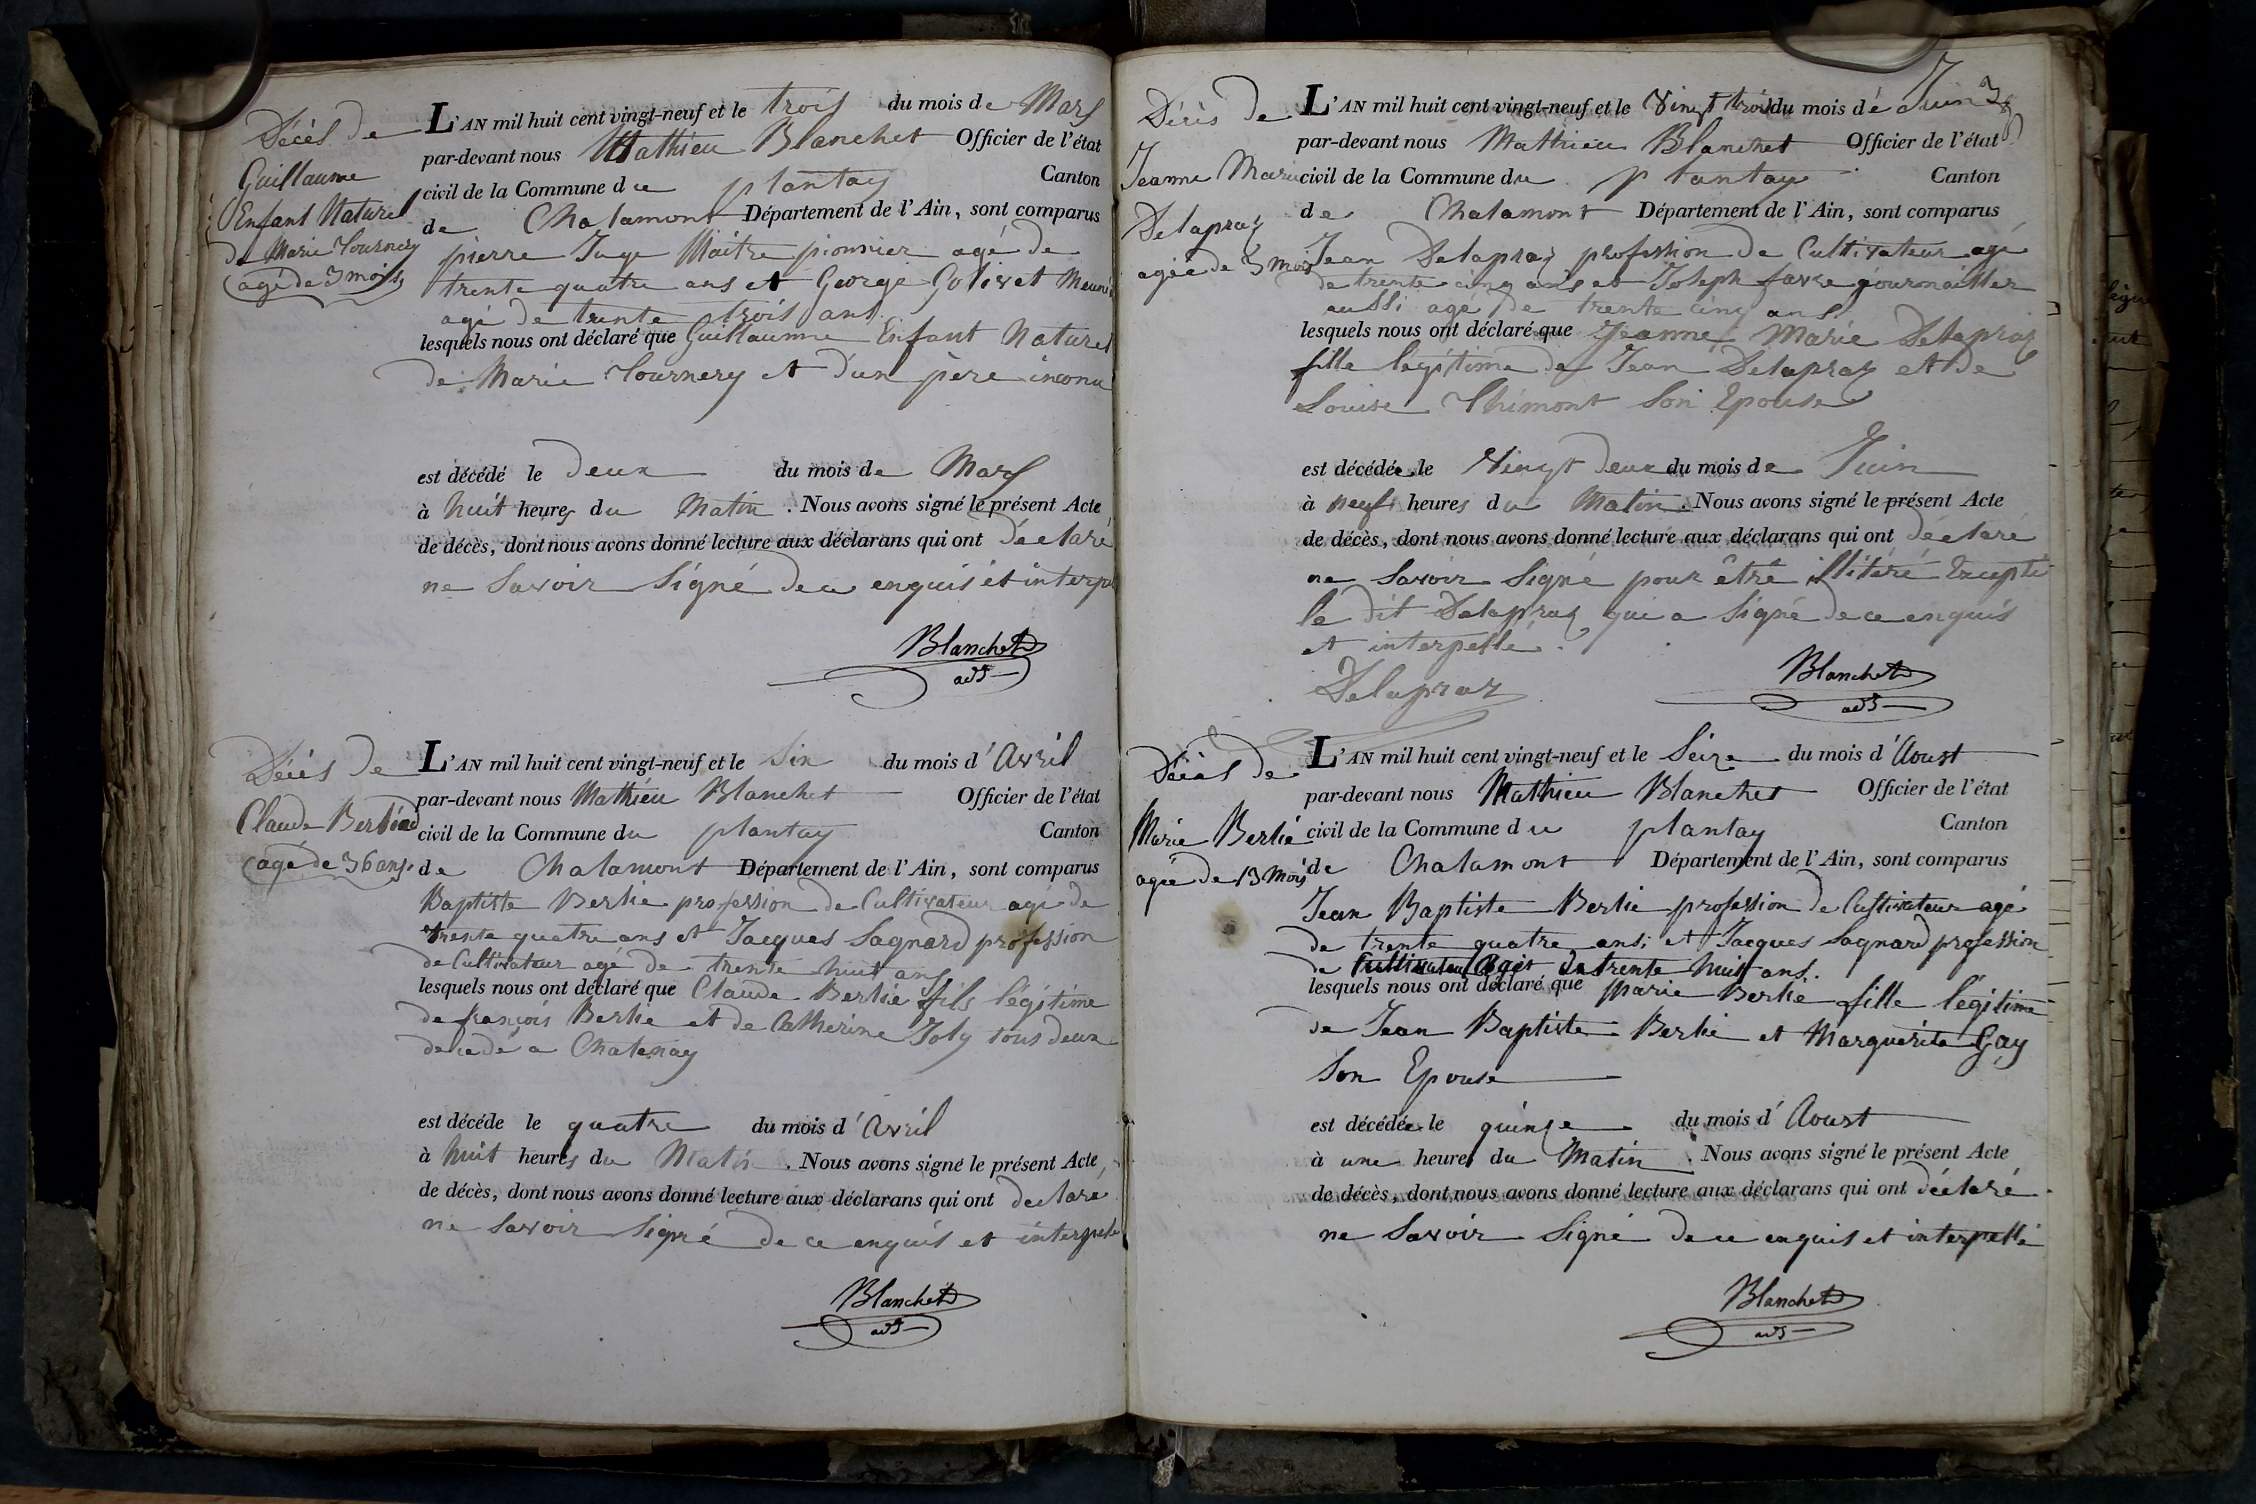 Décès de
Guillaume
Enfant Naturel
de Marie Tournery
agé de 3 mois
L'AN mil huit cent vingt-neuf et le trois du mois de Mars
par-devant nous Mathieu Blanchet Officier de l'état
civil de la Commune du plantay Canton
de Chalamont Département de l'Ain, sont comparus
pierre Juge Maitre pionnier agé de
trente quatre ans et George Golivet Meunié
agé de trente trois ans
lesquels nous ont déclaré que Guillaume Enfant Naturel
de Marie Tournery et d'un père inconu
est décédé le deux du mois de Mars
à huit heures du Matin. Nous avons signé le présent Acte
de décès, dont nous avons donné lecture aux déclarans qui ont déclaré
ne Savoir Signé de ce enquis et interpe
Blanchet
adj
Décès de
Claude Bertied
agé de 36 ans
L'AN mil huit cent vingt-neuf et le Six du mois d'Avril
par-devant nous Mathieu Blanchet Officier de l'état
civil de la Commune du plantay Canton
de Chalamont Département de l'Ain, sont comparus
Baptiste Bertié profession de Cultivateur agé de
trente quatre ans et Jacques Sagnard profession
de Cultivateur agé de trente huit ans
lesquels nous ont déclaré que Claude Bertié fils légitime
de françois Bertie et de Catherine Joly tous deux
decedé a Chatenay
est décéde le quatre du mois d'Avril
à huit heures du Matin. Nous avons signé le présent Acte,
de décès, dont nous avons donné lecture aux déclarans qui ont declaré
ne Savoir Signé de ce enquis et interpele
Blanchet
adj
Décès de
Jeanne Marie
Delapraz
agée de 3 mois
L'AN mil huit cent vingt-neuf et le Vingt trois du mois de Juin
par-devant nous Mathieu Blanchet Officier de l'état
civil de la Commune du plantay Canton
de Chalamont Département de l'Ain, sont comparus
Jean Delapraz profession de Cultivateur agé
de trente cinq ans et Joseph favre journallier
aussi agé de trente cinq ans
lesquels nous ont déclaré que Jeanne Marie Delapraz
fille légitime de Jean Delapraz et de
Louise Thimont Son Epouse
est décédée le Vingt deux du mois de Juin
à neuf heures du Matin. Nous avons signé le présent Acte
de décès, dont nous avons donné lecture aux déclarans qui ont déclaré
ne Savoir Signé pour être illitéré Excepté
le dit Delapraz qui a Signé de ce enquis
et interpellé.
Delapraz
Blanchet
adj
Décès de
Marie Bertié
agée de 13 Mois
L'AN mil huit cent vingt-neuf et le Seize du mois d'Aoust
par-devant nous Mathieu Blanchet Officier de l'état
civil de la Commune du plantay Canton
de Chalamont Département de l'Ain, sont comparus
Jean Baptiste Bertié profession de Cultivateur agé
de trente quatre ans; et Jacques Sagnard profession
de Cultivateur Agé de trente huit ans.
lesquels nous ont déclaré que Marie Bertié fille légitime
de Jean Baptiste Bertié et Marguerite Gay
Son Epouse
est décédée le quinze du mois d'Aoust
à une heures du Matin. Nous avons signé le présent Acte
de décès, dont nous avons donné lecture aux déclarans qui ont déclaré
ne Savoir Signé de ce enquis et interpellé
Blanchet
adj